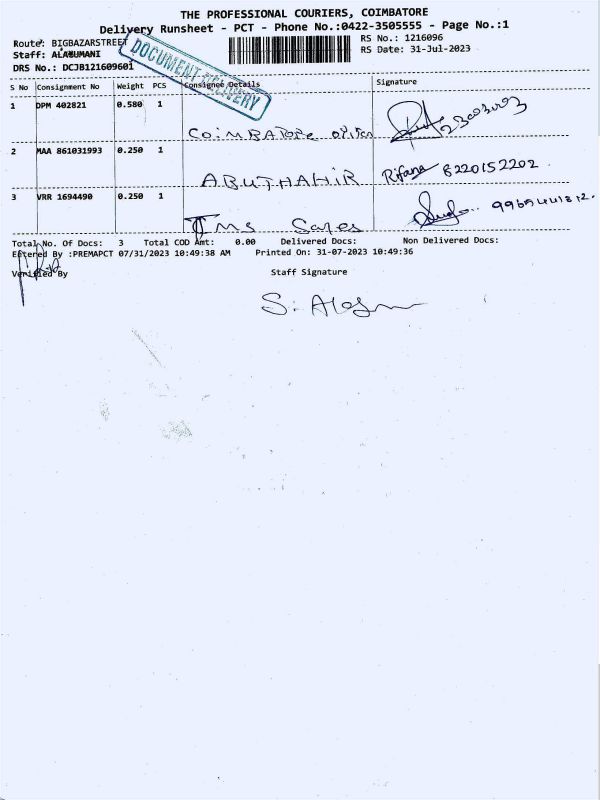 THE PROFESSIONAL COURIERS, COIMBATORE
Delivery Runsheet - PCT - Phone No.:0422-3505555 - Page No.:1
Route: BIGBAZARSTREET
RS No.: 1216096
Staff: ALAGUMANI
RS Date: 31-Jul-2023
DRS No.: DCJB121609601
DOCUMENT DELIVERY
S No Consignment No Weight PCS Consignee Details Signature
1 DPM 402821 0.580 1
COIMBATORE
2 MAA 861031993 0.250 1
ABUTHAHIR Rifana 8220152202
3 VRR 1694490 0.250 1
Sales
Total No. Of Docs: 3 Total COD Amt: 0.00 Delivered Docs: Non Delivered Docs:
Entered By :PREMAPCT 07/31/2023 10:49:38 AM Printed On: 31-07-2023 10:49:36
Verified By Staff Signature